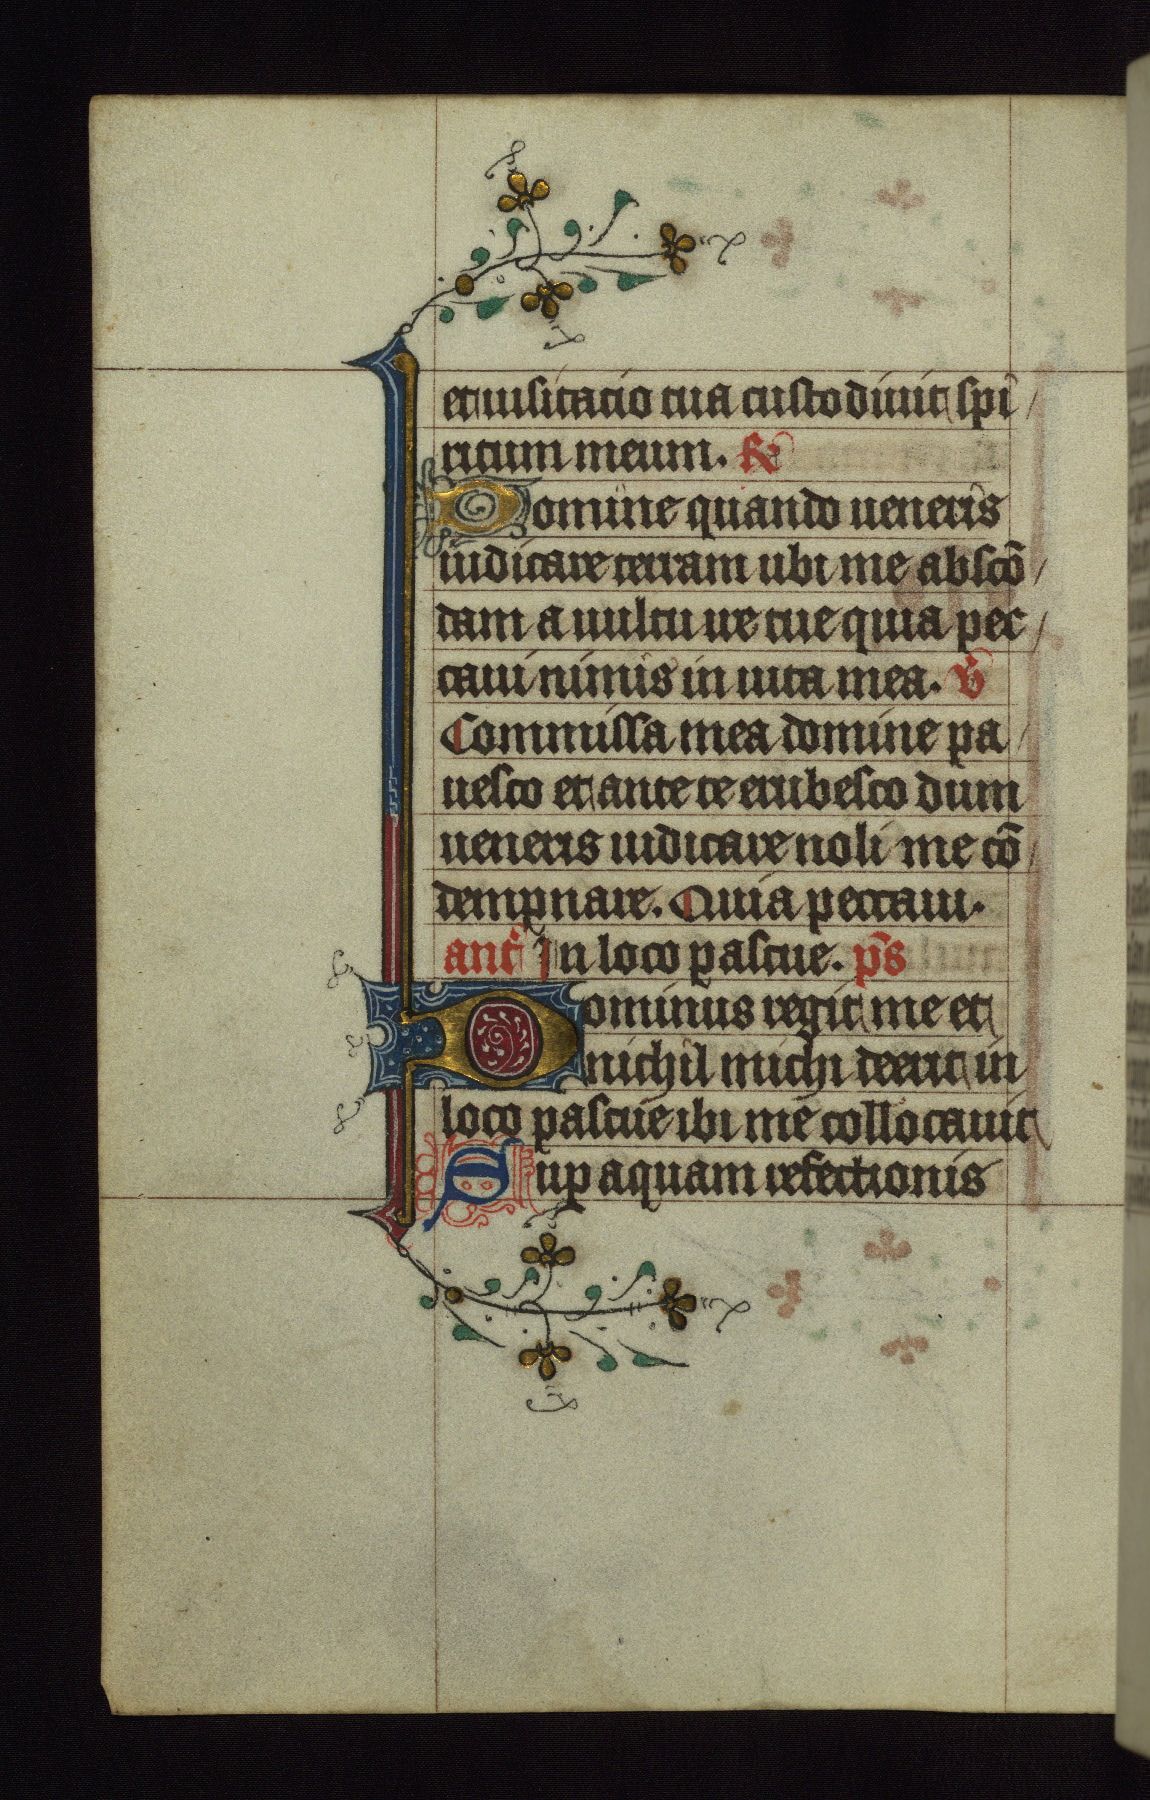 et uisitacio tua custodiuit spi
ritum meum. R
Domine quando ueneris
iudicare terram ubi me abscō
dam a uultu ire tue quia pec
caui nimis in uita mea. V
Commissa mea domine pa
uesco et ante te erubesco dum
ueneris iudicare noli me cō
dempnare. Quia peccaui.
ant̄ In loco pascue. ps̄
Dominus regit me et
nichil michi deerit in
loco pascue ibi me collocauit
Sup aquam refectionis